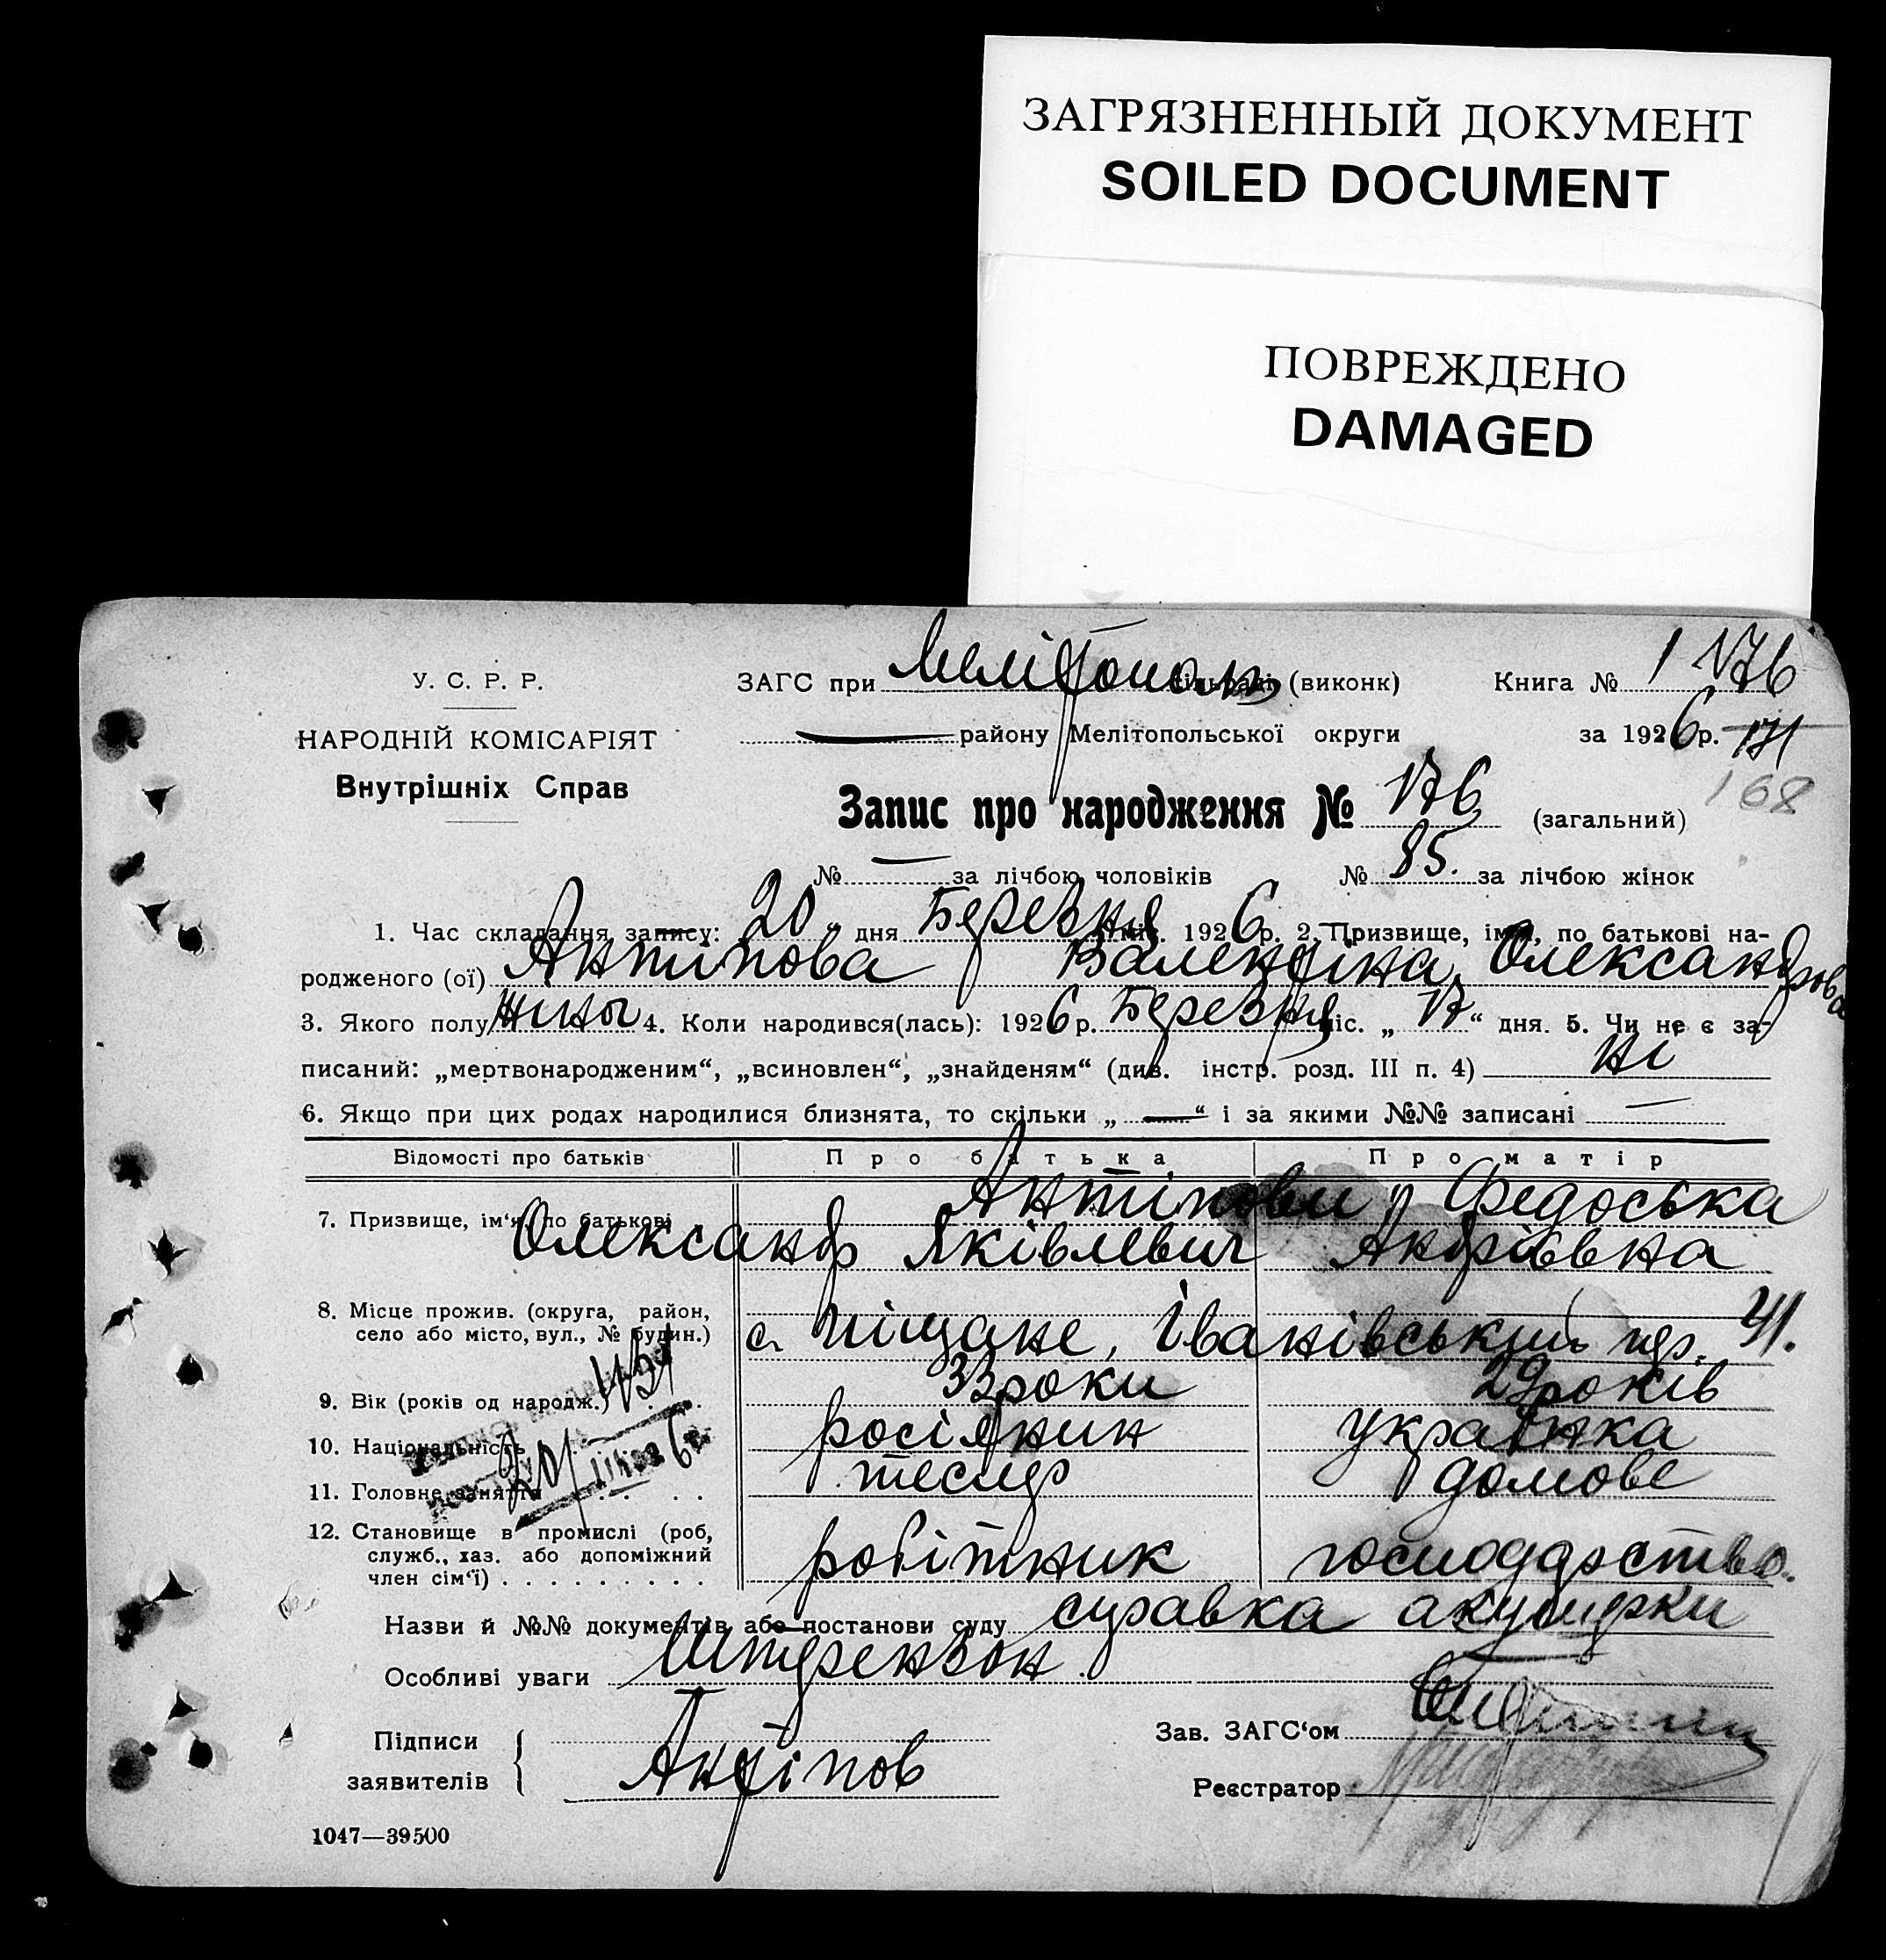 ЗАГРЯЗНЕННЫЙ ДОКУМЕНТ
SOILED DOCUMENT
ПОВРЕЖДЕНО
DAMAGED
У. С. Р. Р.
НАРОДНІЙ КОМІСАРІЯТ
Внутрішніх Справ
ЗАГС при Мелітополь сільраді (виконк)
Книга № 1 176
району Мелітопольської округи
за 1926р. 171
168
Запис про народження № 176 (загальний)
№ — за лічбою чоловіків № 85. за лічбою жінок
1. Час складання запису: 20 „ дня Березня міс. 1926 р. 2. Призвище, імя, по батькові на-
родженого (ої) Антіпова Валентіна Олександрова
3. Якого полу жіны 4. Коли народився(лась): 1926 р. Березня міс. „ 17 “ дня. 5. Чи не є за-
писаний: „мертвонародженим“, „всиновлен“, „знайденям“ (див. інстр. розд. III п. 4) ні
6. Якщо при цих родах народилися близнята, то скільки „ — “ і за якими №№ записані —
Відомості про батьків Про батька Про матір
7. Призвище, ім‘я, по батькові Антіпови Федоська
Олександр Яківлевич Андріівна
8. Місце прожив. (округа, район,
село або місто, вул., № будин.) с. Піщане, Іванівський пер. 41.
9. Вік (років од народж.) 33 роки 29 років
10. Національність росіянин українка
11. Головне заняття тесляр домове
12. Становище в промислі (роб,
служб., хаз. або допоміжний
член сім‘ї) робітник господарство.
Назви й №№ документів або постанови суду справка акушерки
Особливі уваги Штерензон.
Підписи
заявителів Антіпов
Зав. ЗАГС‘ом
Реєстратор
1047—39500